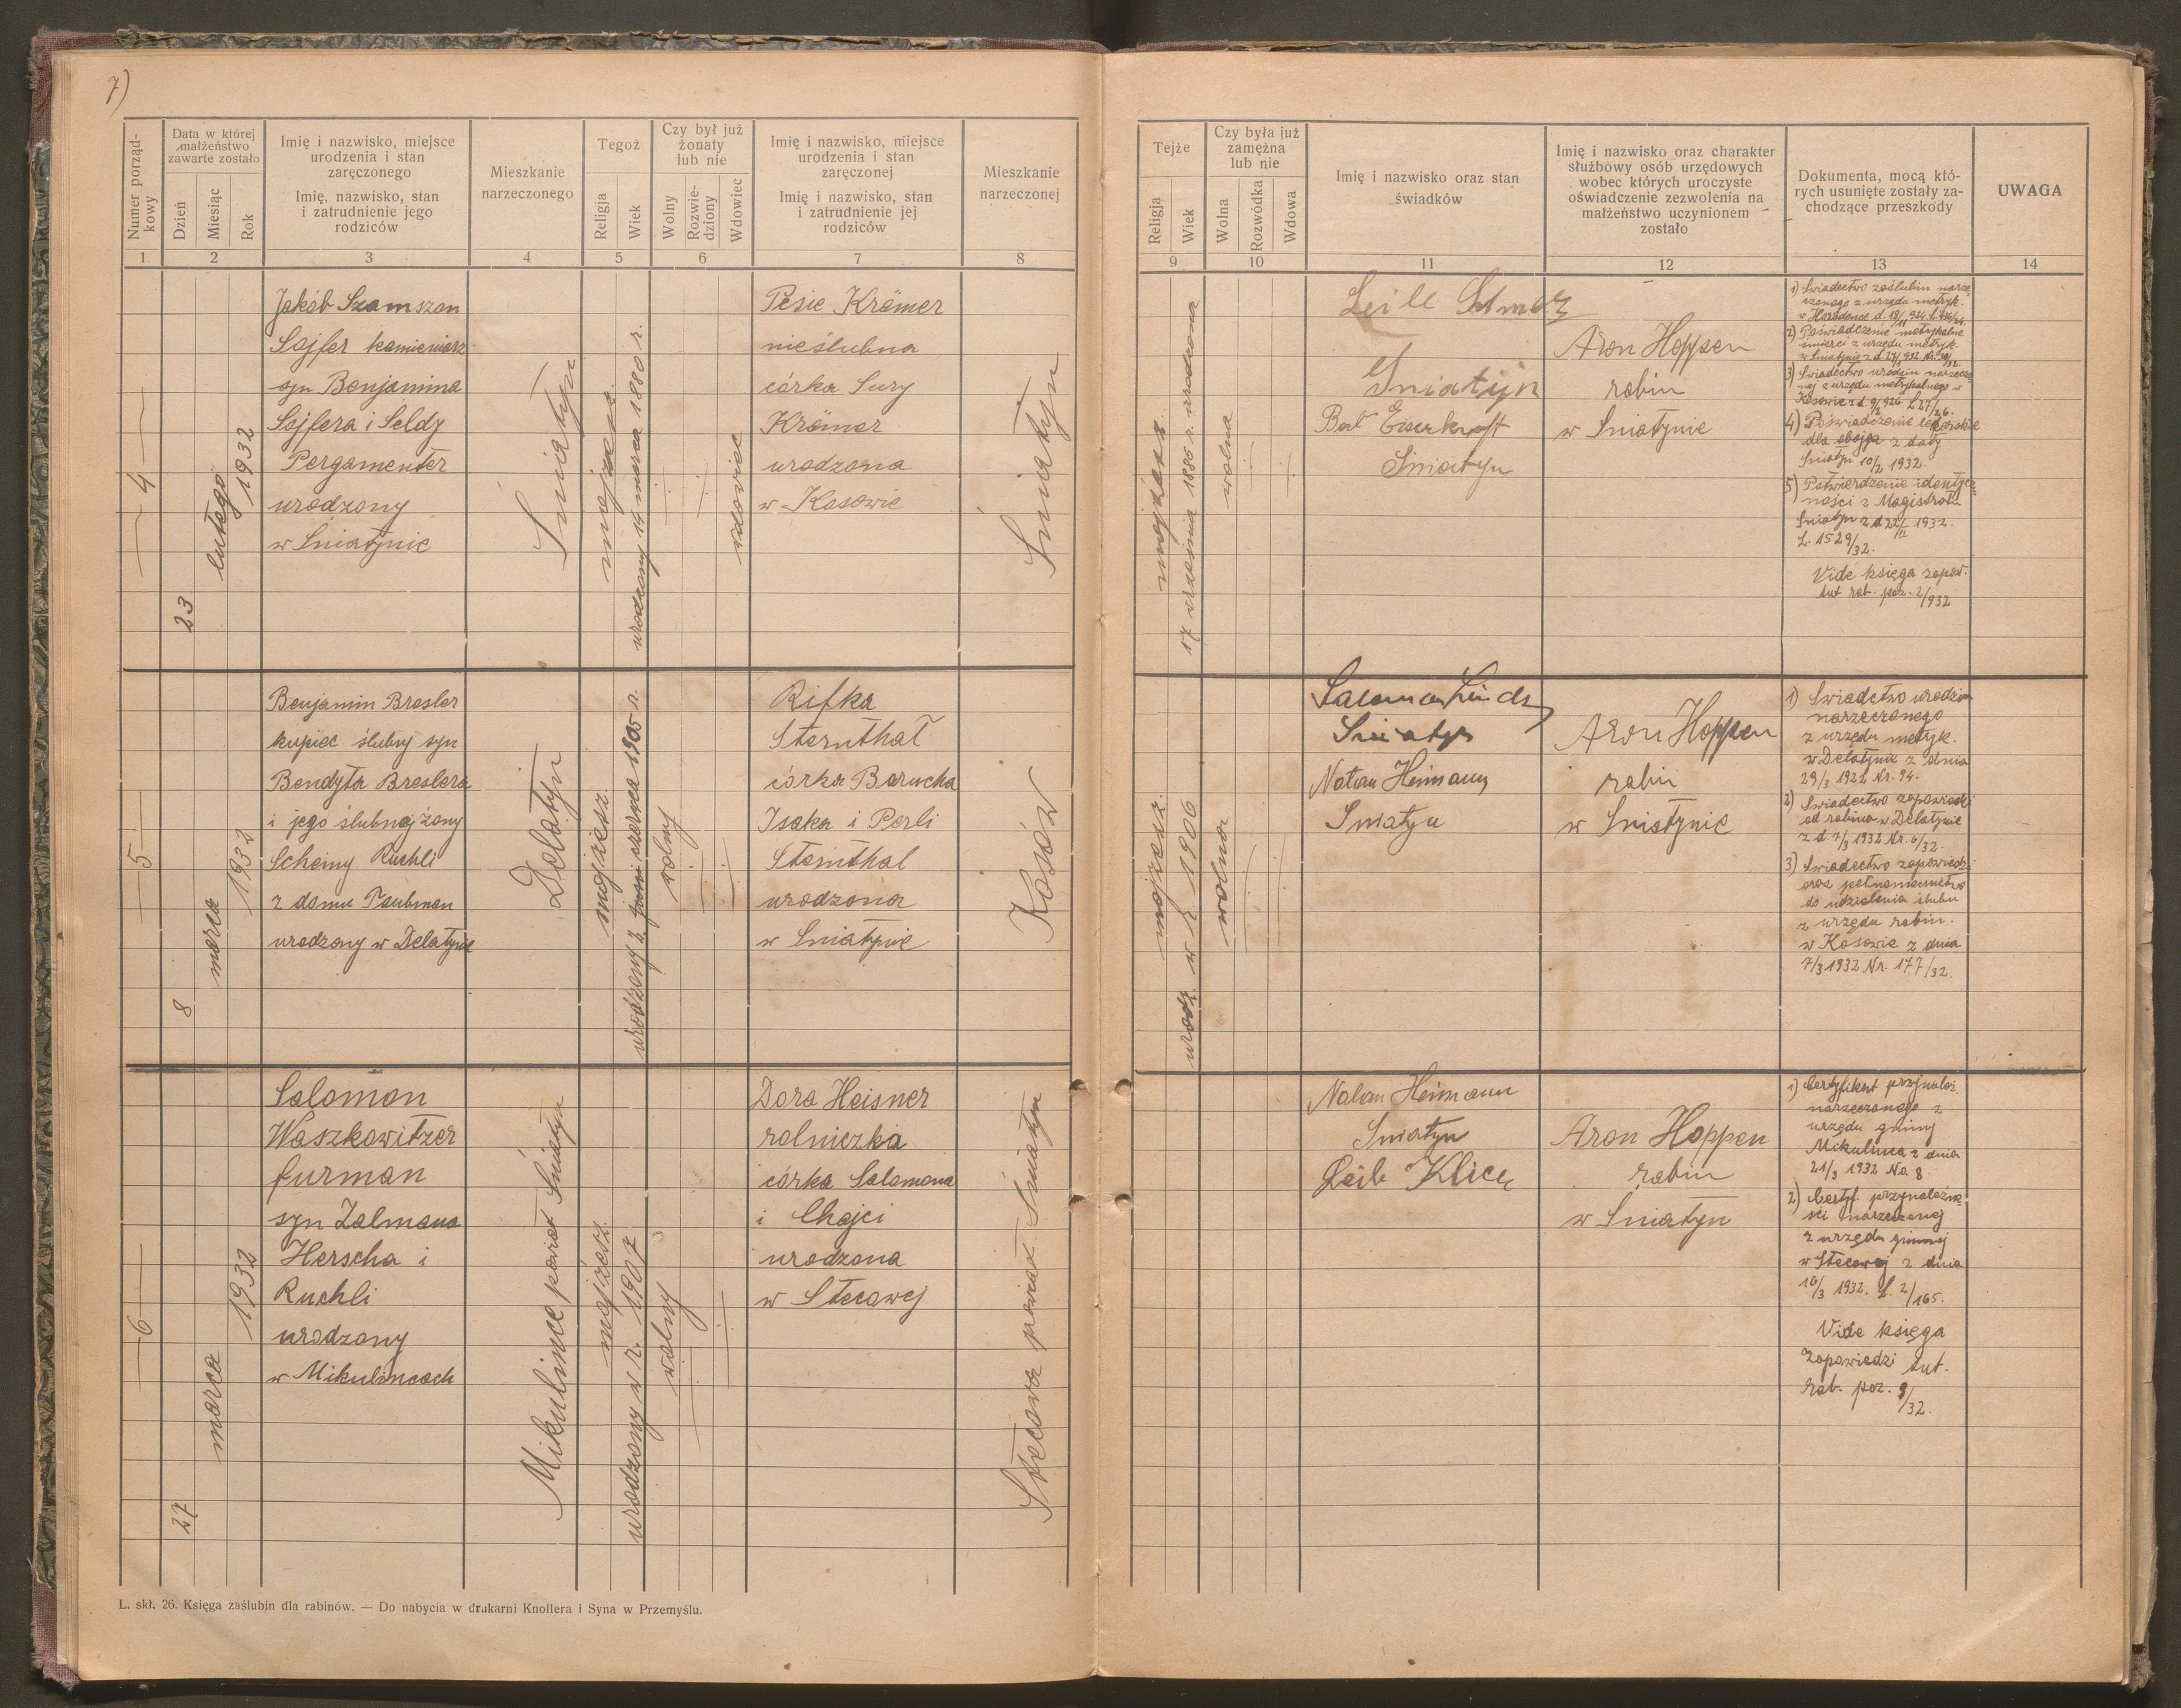 7)
Numer porząd-
kowy
Data w której
małżeństwo
zawarte zostało
Dzień
Miesiąc
Rok
Imię i nazwisko, miejsce
urodzenia i stan
zaręczonego
Imię, nazwisko, stan
i zatrudnienie jego
rodziców
Mieszkanie
narzeczonego
Tegoż
Religja
Wiek
Czy był już
żonaty
lub nie
Wolny
Rozwie-
dziony
Wdowiec
Imię i nazwisko, miejsce
urodzenia i stan
zaręczonej
Imię i nazwisko, stan
i zatrudnienie jej
rodziców
Mieszkanie
narzeczonej
1 2 3 4 5 6 7 8
4
23
lutego
1932
Jakób Szamszon
Sojfer kamieniarz
syn Benjamina
Sojfera i Seldy
Pergamenter
urodzony
w Śniatynie
Śniatyn
mojżesz.
urodzony 14 marca 1880 r.
wdowiec
Pesie Krämer
nieślubna
córka Sury
Krämer
urodzona
w Kosowie
Śniatyn
5
8
marca
1932
Benjamin Bresler
kupiec ślubny syn
Bendyta Breslera
i jego ślubnej żony
Scheiny Ruchli
z domu Taubman
urodzony w Delatynie
Delatyn
mojżesz.
urodzony 2 czerwca 1905 r.
wolny
Rifka
Sternthal
córka Barucha
Isaka i Perli
Sternthal
urodzona
w Śniatynie
Kosów
6
27
marca
1932
Salomon
Waszkowitzer
furman
syn Zalmana
Herscha i
Ruchli
urodzony
w Mikulincach
Mikulince powiat Śniatyn
mojżesz.
urodzony w r. 1907
wolny
Dora Heisner
rolniczka
córka Salomona
i Chajci
urodzona
w Stecowej
Stecowa powiat Śniatyn
L. skł. 26. Księga zaślubin dla rabinów. — Do nabycia w drukarni Knollera i Syna w Przemyślu.
Tejże
Religja
Wiek
Czy była już
zamężna
lub nie
Wolna
Rozwódka
Wdowa
Imię i nazwisko oraz stan
świadków
Imię i nazwisko oraz charakter
służbowy osób urzędowych
wobec których uroczyste
oświadczenie zezwolenia na
małżeństwo uczynionem
zostało
Dokumenta, mocą któ-
rych usunięte zostały za-
chodzące przeszkody
UWAGA
9 10 11 12 13 14
mojżesz
17 września 1886 r. urodzona
wolna
Śniatyn
Śniatyn
Aron Hoppen
rabin
w Śniatynie
1) Świadectwo zaślubin narze-
czonego z urzędu metryk.
w Horodence
2) Poświadczenie metrykalne
śmierci z urzędu metryk.
w Śniatynie
3) Świadectwo urodzin narzeczo-
nej z urzędu metrykalnego w
Kosowie
4) Poświadczenie lekarskie
dla obojga z daty
Śniatyn 10/2 1932.
5) Potwierdzenie identycz-
ności z Magistratu
Śniatyn z d. 22/II 1932.
L. 1529/32.
Vide księga zapow.
tut rab. poz. 2/932
mojżesz.
urodz. w r. 1906
wolna
Śniatyn
Natan Heimann
Śniatyn
Aron Hoppen
rabin
w Śniatynie
1) Świadectwo urodzin
narzeczonego
z urzędu metryk.
w Delatynie z dnia
29/3 1922 Nr. 94.
2) Świadectwo zapowiedzi
od rabina w Delatynie
z d. 7/3 1932 Nr. 6/32.
3) Świadectwo zapowiedzi
oraz pełnomocnictwo
do udzielenia ślubu
z urzędu rabin.
w Kosowie z dnia
7/3 1932 Nr. 177/32.
Natan Heimann
Śniatyn
Leib
Aron Hoppen
rabin
w Śniatyn
1) Certyfikat przynależ.
narzeczonego z
urzędu gminy
Mikulince z dnia
21/3 1932 No. 8
2) Certyf. przynależno-
ści narzeczonej
z urzędu gminnej
w Stecowej z dnia
16/3 1932. L. 2/165.
Vide księga
zapowiedzi tut.
rab. poz. 9/32.